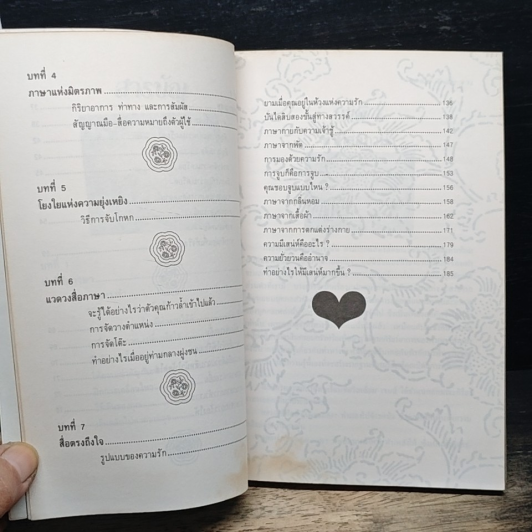 บทที่ 4
ภาษาแห่งมิตรภาพ
กิริยาอาการ ท่าทาง และการสัมผัส
สัญญาณมือ-สื่อความหมายถึงตัวผู้ใช้
บทที่ 5
โยงใยแห่งความยุ่งเหยิง
วิธีการจับโกหก
บทที่ 6
แวดวงสื่อภาษา
จะรู้ได้อย่างไรว่าตัวคุณก้าวล้ำเข้าไปแล้ว
การจัดวางตำแหน่ง
การจัดโต๊ะ
ทำอย่างไรเมื่ออยู่ท่ามกลางฝูงชน
บทที่ 7
สื่อตรงถึงใจ
รูปแบบของความรัก
ยามเมื่อคุณอยู่ในห้วงแห่งความรัก 136
บันไดสิบสองขั้นสู่ทางสวรรค์ 138
ภาษากายกับความเจ้าชู้ 142
ภาษาจากพัด 147
การมองด้วยความรัก 148
การจูบก็คือการจูบ 153
คุณชอบจูบแบบไหน ? 156
ภาษาจากกลิ่นหอม 158
ภาษาจากเสื้อผ้า 162
ภาษาจากการตกแต่งร่างกาย 171
ความมีเสน่ห์คืออะไร ? 179
ความยั่วยวนคืออำนาจ 184
ทำอย่างไรให้มีเสน่ห์มากขึ้น ? 185